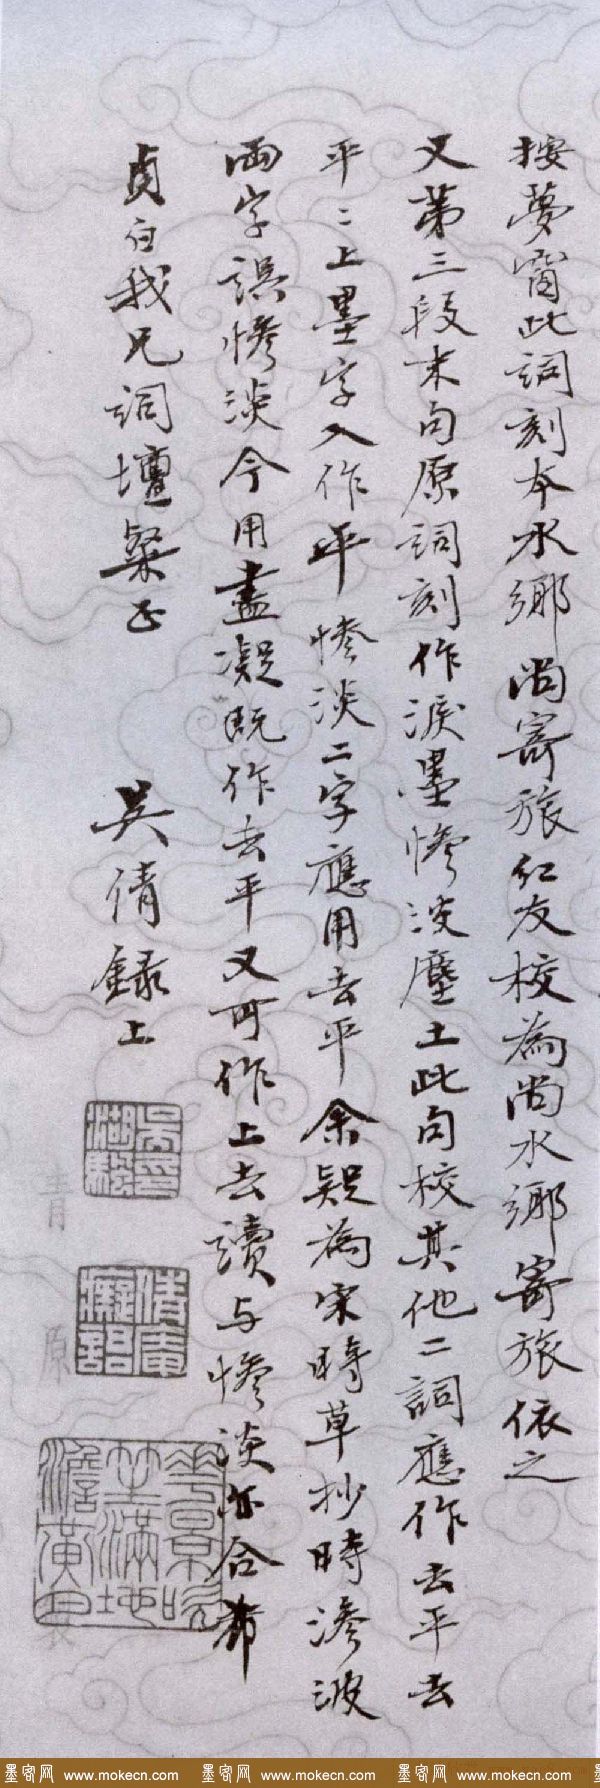 按夢窗此詞刻本水鄉尚寄旅仁友校為尚水鄉寄旅依之
又第三段末句原詞刻作淚墨慘淡塵土此句校其他二詞應作去平去
平二上墨字入作平慘淡二字應用去平余疑為宋時草抄時滲波
兩字誤慘淡今用盡凝既作去平又可作上去讀与慘淡亦合希
貞白我兄詞壇粲正
吳倩錄上
吳湖颿印
倩庵癡語
墨客网 www.mokecn.com 墨客网 www.mokecn.com 墨客网 www.mokecn.com 墨客网